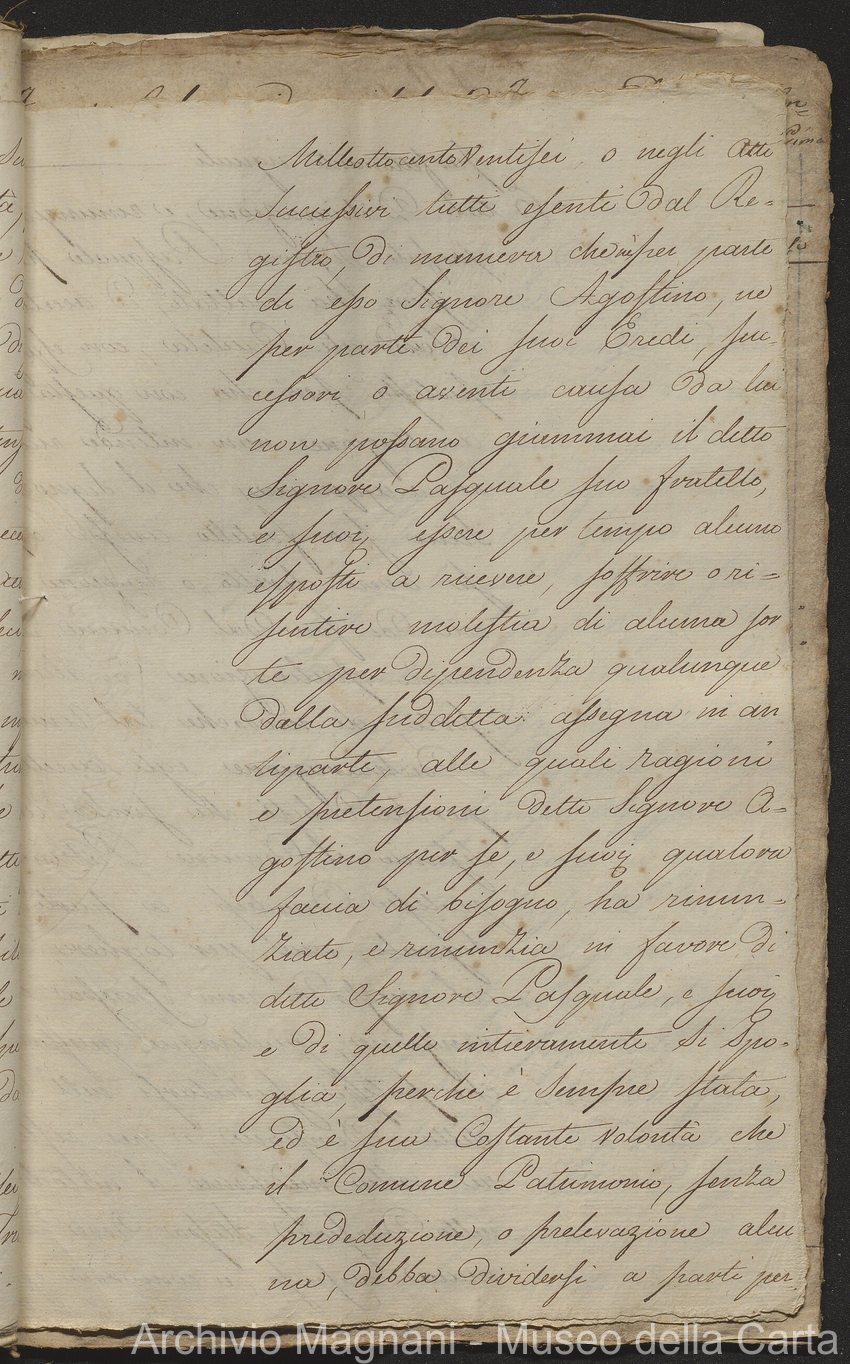 Milleottocento Ventisei, o negli Atti
Successivi tutti esenti dal Re-
gistro, di maniera che nè per parte
di esso Signore Agostino, ne
per parte dei suoi Eredi, suc-
cessori o aventi causa da lui
non possano giammai il detto
Signore Pasquale suo fratello,
e suoij essere per tempo alcuno
esposti a ricevere, soffrire o ri-
sentire molestia di alcuna sor
te per dipendenza qualunque
dalla suddetta assegna in an
tiparte, alle quali ragioni
e pretensioni detto Signore A-
gostino per se, e suoij qualora
faccia di bisogno, ha rinun-
ziato, e rinunzia in favore di
detto Signore Pasquale, e suoij
e di quelle intieramente si spo-
glia, perchè è sempre stata,
ed è sua Costante volontà che
il Comune Patrimonio, senza
prededuzione, o prelevazione alcu
na, debba dividersi a parti per-
Archivio Magnani - Museo della Carta